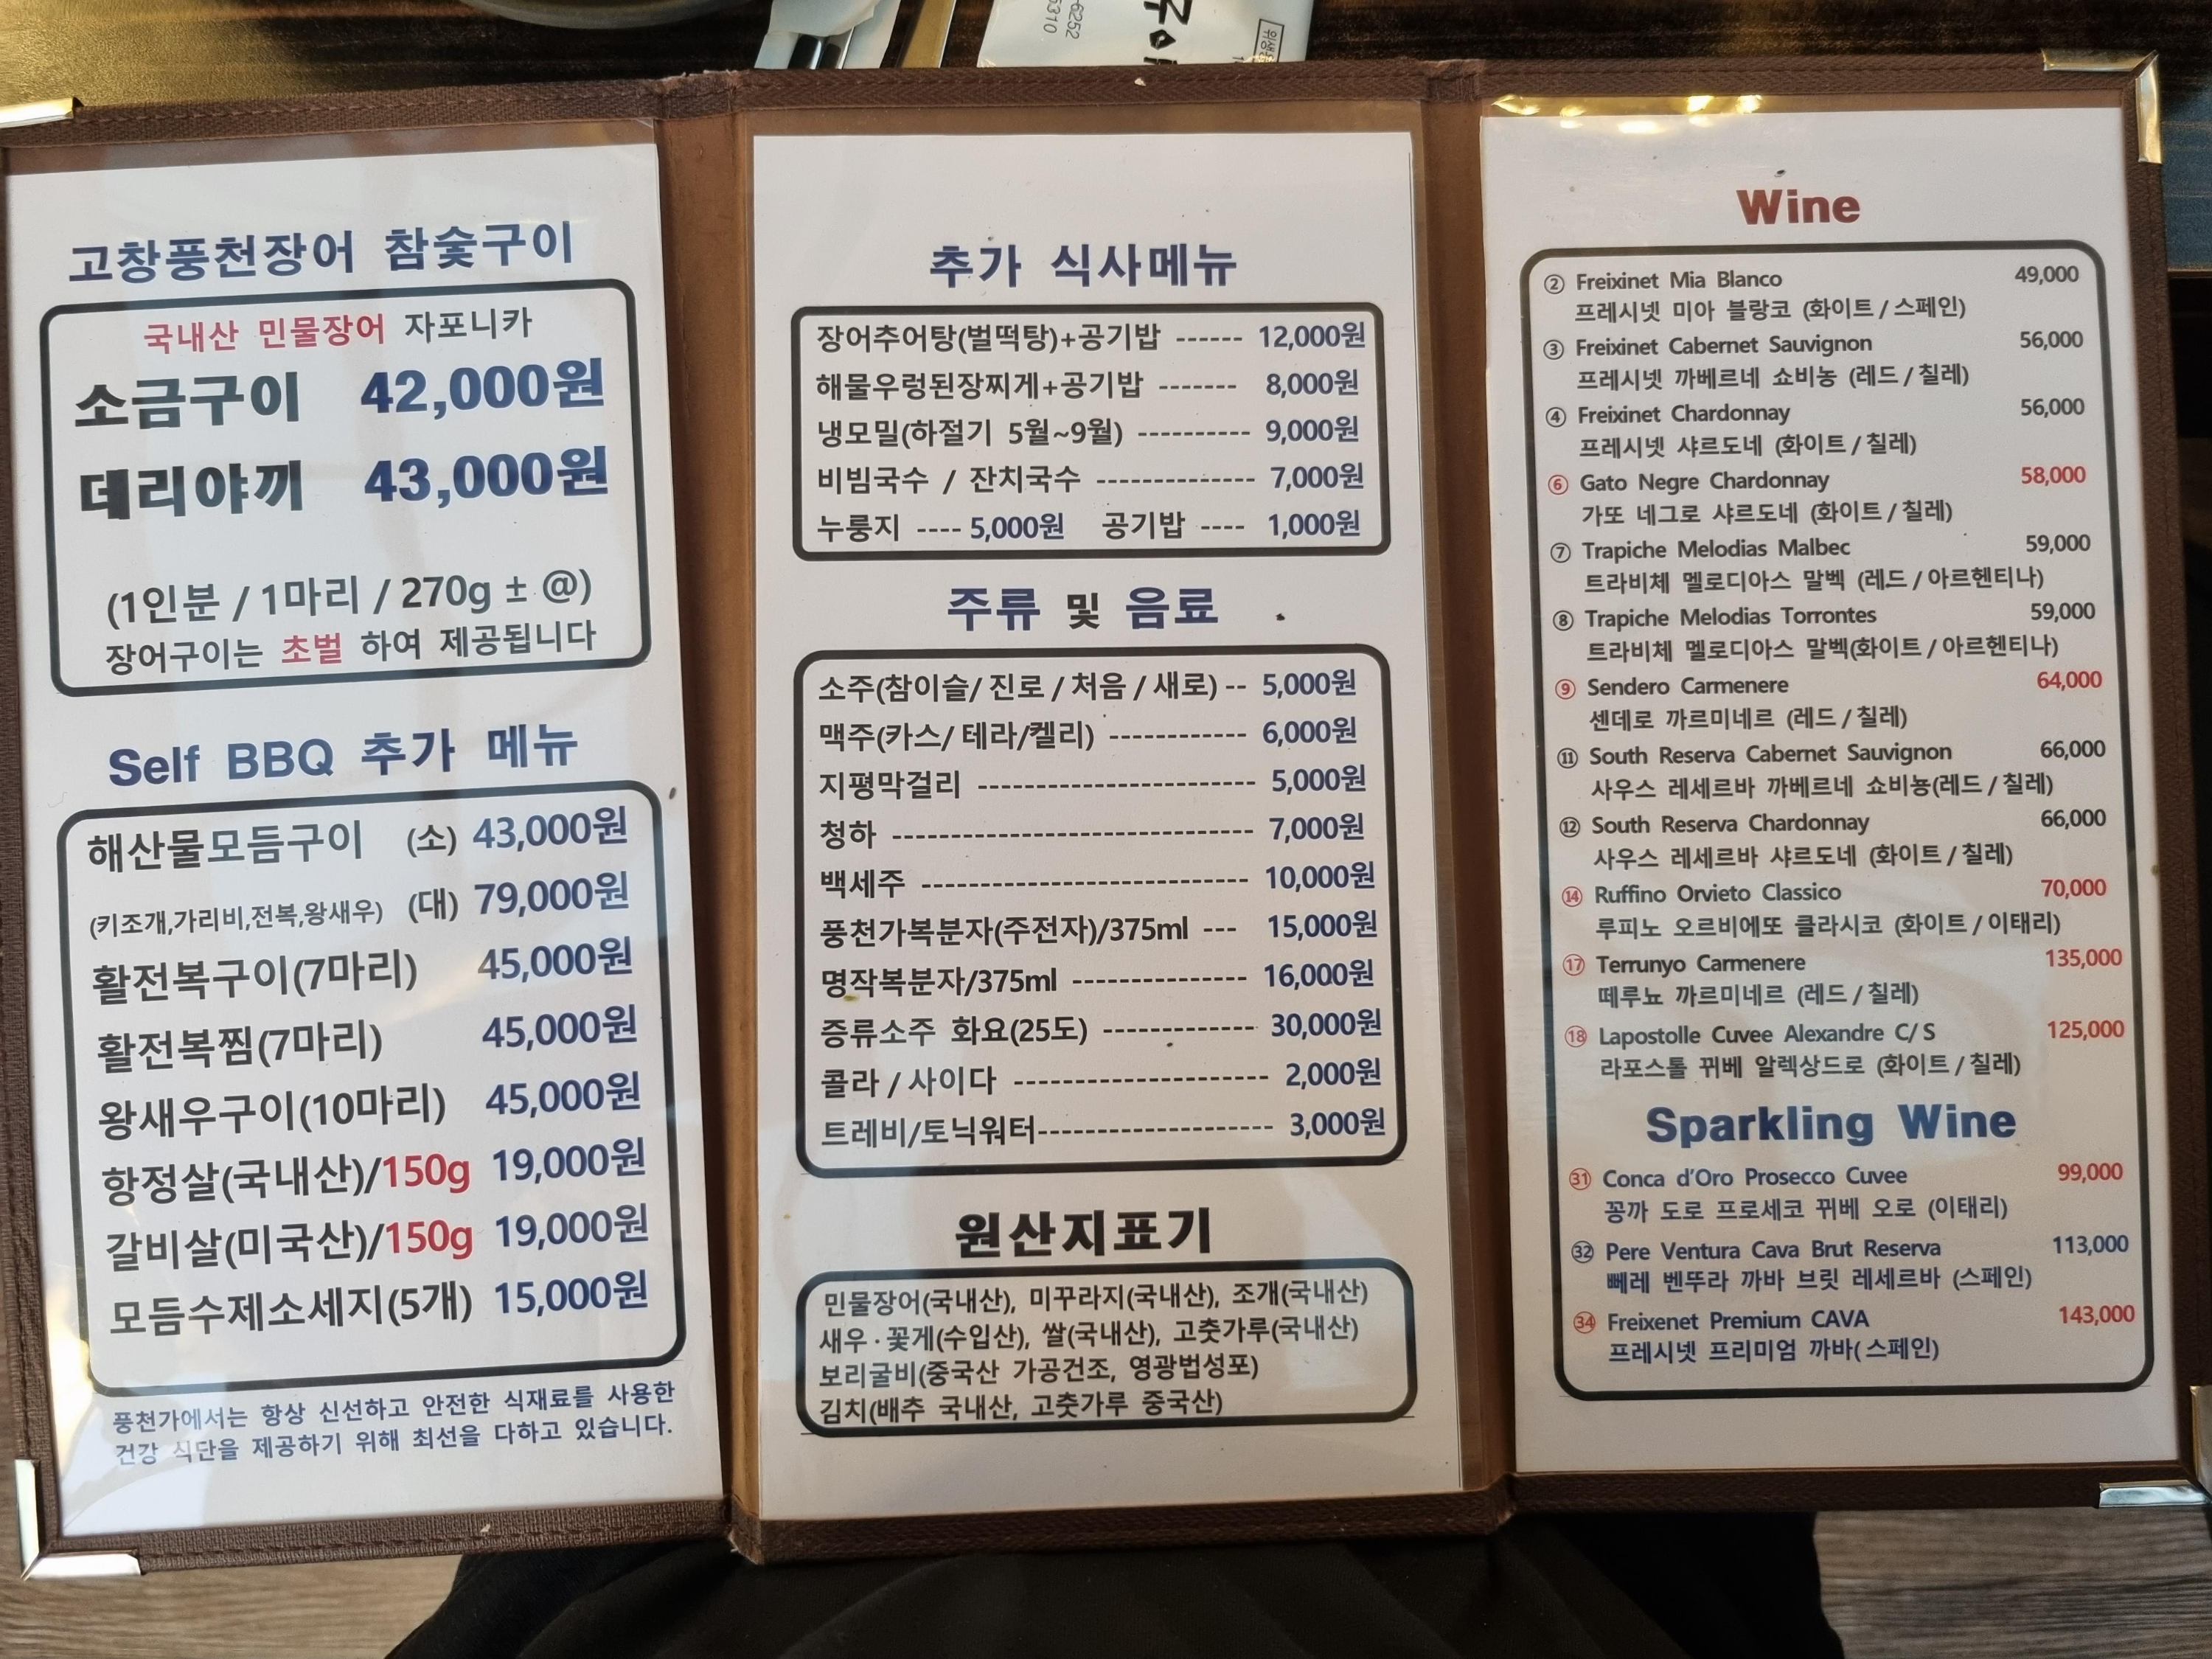 6252
5310
고창풍천장어 참숯구이
국내산 민물장어 자포니카
소금구이 42,000원
데리야끼 43,000원
(1인분 / 1마리 / 270g ± @)
장어구이는 초벌 하여 제공됩니다
Self BBQ 추가 메뉴
해산물모듬구이 (소) 43,000원
(키조개,가리비,전복,왕새우) (대) 79,000원
활전복구이(7마리) 45,000원
활전복찜(7마리) 45,000원
왕새우구이(10마리) 45,000원
항정살(국내산)/150g 19,000원
갈비살(미국산)/150g 19,000원
모듬수제소세지(5개) 15,000원
풍천가에서는 항상 신선하고 안전한 식재료를 사용한
건강 식단을 제공하기 위해 최선을 다하고 있습니다.
추가 식사메뉴
장어추어탕(벌떡탕)+공기밥 ------ 12,000원
해물우렁된장찌게+공기밥 ------- 8,000원
냉모밀(하절기 5월~9월) ---------- 9,000원
비빔국수 / 잔치국수 -------------- 7,000원
누룽지 ---- 5,000원 공기밥 ---- 1,000원
주류 및 음료
소주(참이슬/ 진로 / 처음 / 새로) -- 5,000원
맥주(카스/ 테라/켈리) ------------ 6,000원
지평막걸리 ------------------------ 5,000원
청하 ------------------------------- 7,000원
백세주 ---------------------------- 10,000원
풍천가복분자(주전자)/375ml --- 15,000원
명작복분자/375ml --------------- 16,000원
증류소주 화요(25도) ------------- 30,000원
콜라 / 사이다 ---------------------- 2,000원
트레비/토닉워터-------------------- 3,000원
원산지표기
민물장어(국내산), 미꾸라지(국내산), 조개(국내산)
새우 · 꽃게(수입산), 쌀(국내산), 고춧가루(국내산)
보리굴비(중국산 가공건조, 영광법성포)
김치(배추 국내산, 고춧가루 중국산)
Wine
② Freixinet Mia Blanco 49,000
프레시넷 미아 블랑코 (화이트 / 스페인)
③ Freixinet Cabernet Sauvignon 56,000
프레시넷 까베르네 쇼비뇽 (레드 / 칠레)
④ Freixinet Chardonnay 56,000
프레시넷 샤르도네 (화이트 / 칠레)
⑥ Gato Negre Chardonnay 58,000
가또 네그로 샤르도네 (화이트 / 칠레)
⑦ Trapiche Melodias Malbec 59,000
트라비체 멜로디아스 말벡 (레드 / 아르헨티나)
⑧ Trapiche Melodias Torrontes 59,000
트라비체 멜로디아스 말벡(화이트 / 아르헨티나)
⑨ Sendero Carmenere 64,000
센데로 까르미네르 (레드 / 칠레)
⑪ South Reserva Cabernet Sauvignon 66,000
사우스 레세르바 까베르네 쇼비뇽(레드 / 칠레)
⑫ South Reserva Chardonnay 66,000
사우스 레세르바 샤르도네 (화이트 / 칠레)
⑭ Ruffino Orvieto Classico 70,000
루피노 오르비에또 클라시코 (화이트 / 이태리)
⑰ Terrunyo Carmenere 135,000
떼루뇨 까르미네르 (레드 / 칠레)
⑱ Lapostolle Cuvee Alexandre C/ S 125,000
라포스톨 뀌베 알렉상드로 (화이트 / 칠레)
Sparkling Wine
㉛ Conca d'Oro Prosecco Cuvee 99,000
꽁까 도로 프로세코 뀌베 오로 (이태리)
㉜ Pere Ventura Cava Brut Reserva 113,000
뻬레 벤뚜라 까바 브릿 레세르바 (스페인)
㉞ Freixenet Premium CAVA 143,000
프레시넷 프리미엄 까바( 스페인)